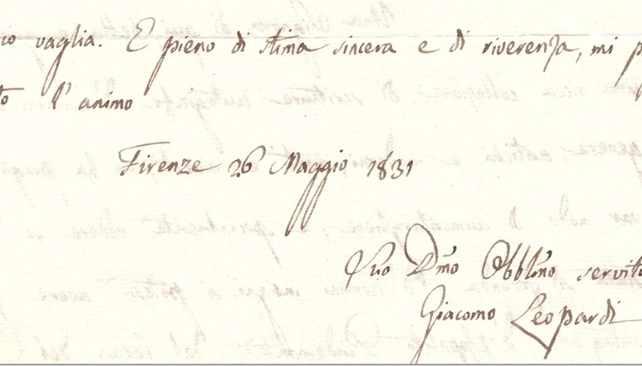 co vaglia. E pieno di stima sincera e di riverenza, mi p
to l'animo
Firenze 26 Maggio 1831
Suo Dmo Obblmo servito
Giacomo Leopardi